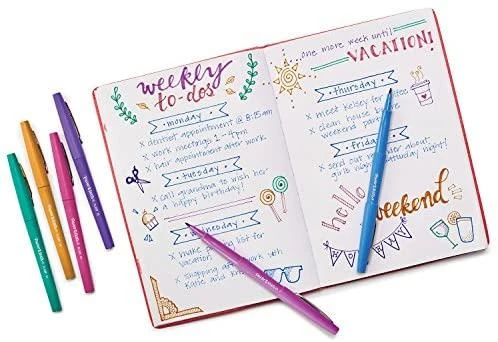 weekly
to-dos
monday
x dentist appointment @ 8:15am
x work meetings 1-4pm
x hair appointment after work
tuesday
x call grandma to wish her
a happy birthday!
wednesday
x make packing list for
vacation
x shopping after work with
Katie and
...one more week until
VACATION!
thursday
x meet Kelsey for coffee
x clean house before
weekend
friday
x send out about
girls night Saturday night!
hello
weekend